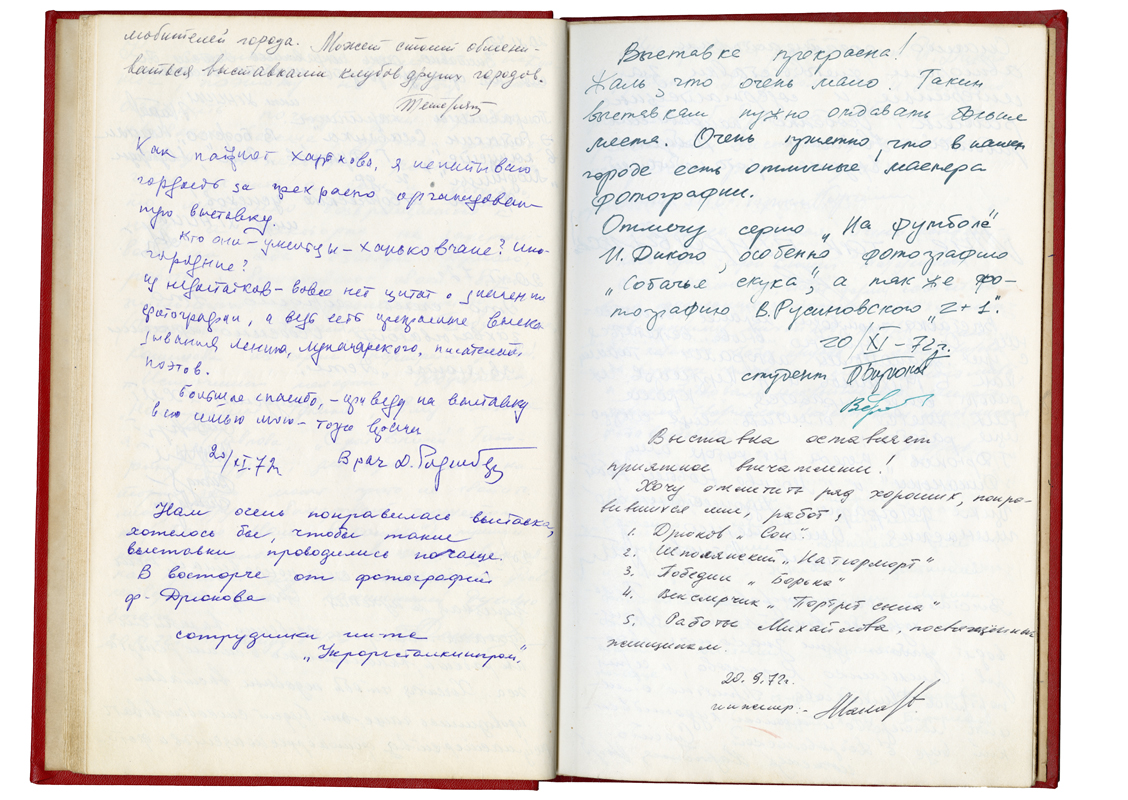 любителей города. Может стоит обмени-
ваться выставками клубов других городов.
Как патриот Харькова, я испытываю
гордость за прекрасно организован-
ную выставку
Кто они – умельцы – харьковчане? Ино-
городние?
из недостатков – вовсе нет цитат о значении
фотографии, а ведь есть прекрасные выска-
зывания Ленина, Луначарского, писателей
поэтов.
Большое спасибо, – приведу на выставку
всю семью мою – тоже врачи
20/XI.72г Врач Д.
Нам очень понравилась выставка,
хотелось бы, чтобы такие
выставки проводились почаще.
В восторге от фотографий
ф. Дрюкова
сотрудники ин-та
„Укроргстанкинпром".
Выставка прекрасна!
Жаль, что очень мало. Таким
выставкам нужно отдавать больше
места. Очень приятно, что в нашем
городе есть отличные мастера
фотографии.
Отмечу серию „На футболе"
И. Дикого, особенно фотографию
„Собачья скука", а так же фо-
тографию В. Русиновского „2+1".
20/XI – 72г.
студент
Выставка оставляет
приятное впечатление!
Хочу отметить ряд хороших, понра-
вившихся мне, работ:
1. Дрюков „Сон"
2. Шполянский „Натюрморт"
3. Победин „Борька"
4. Векслерчик „Портрет сына"
5. Работы Михайлова, посвящённые
женщинам.
20.9.72г.
инженер: –